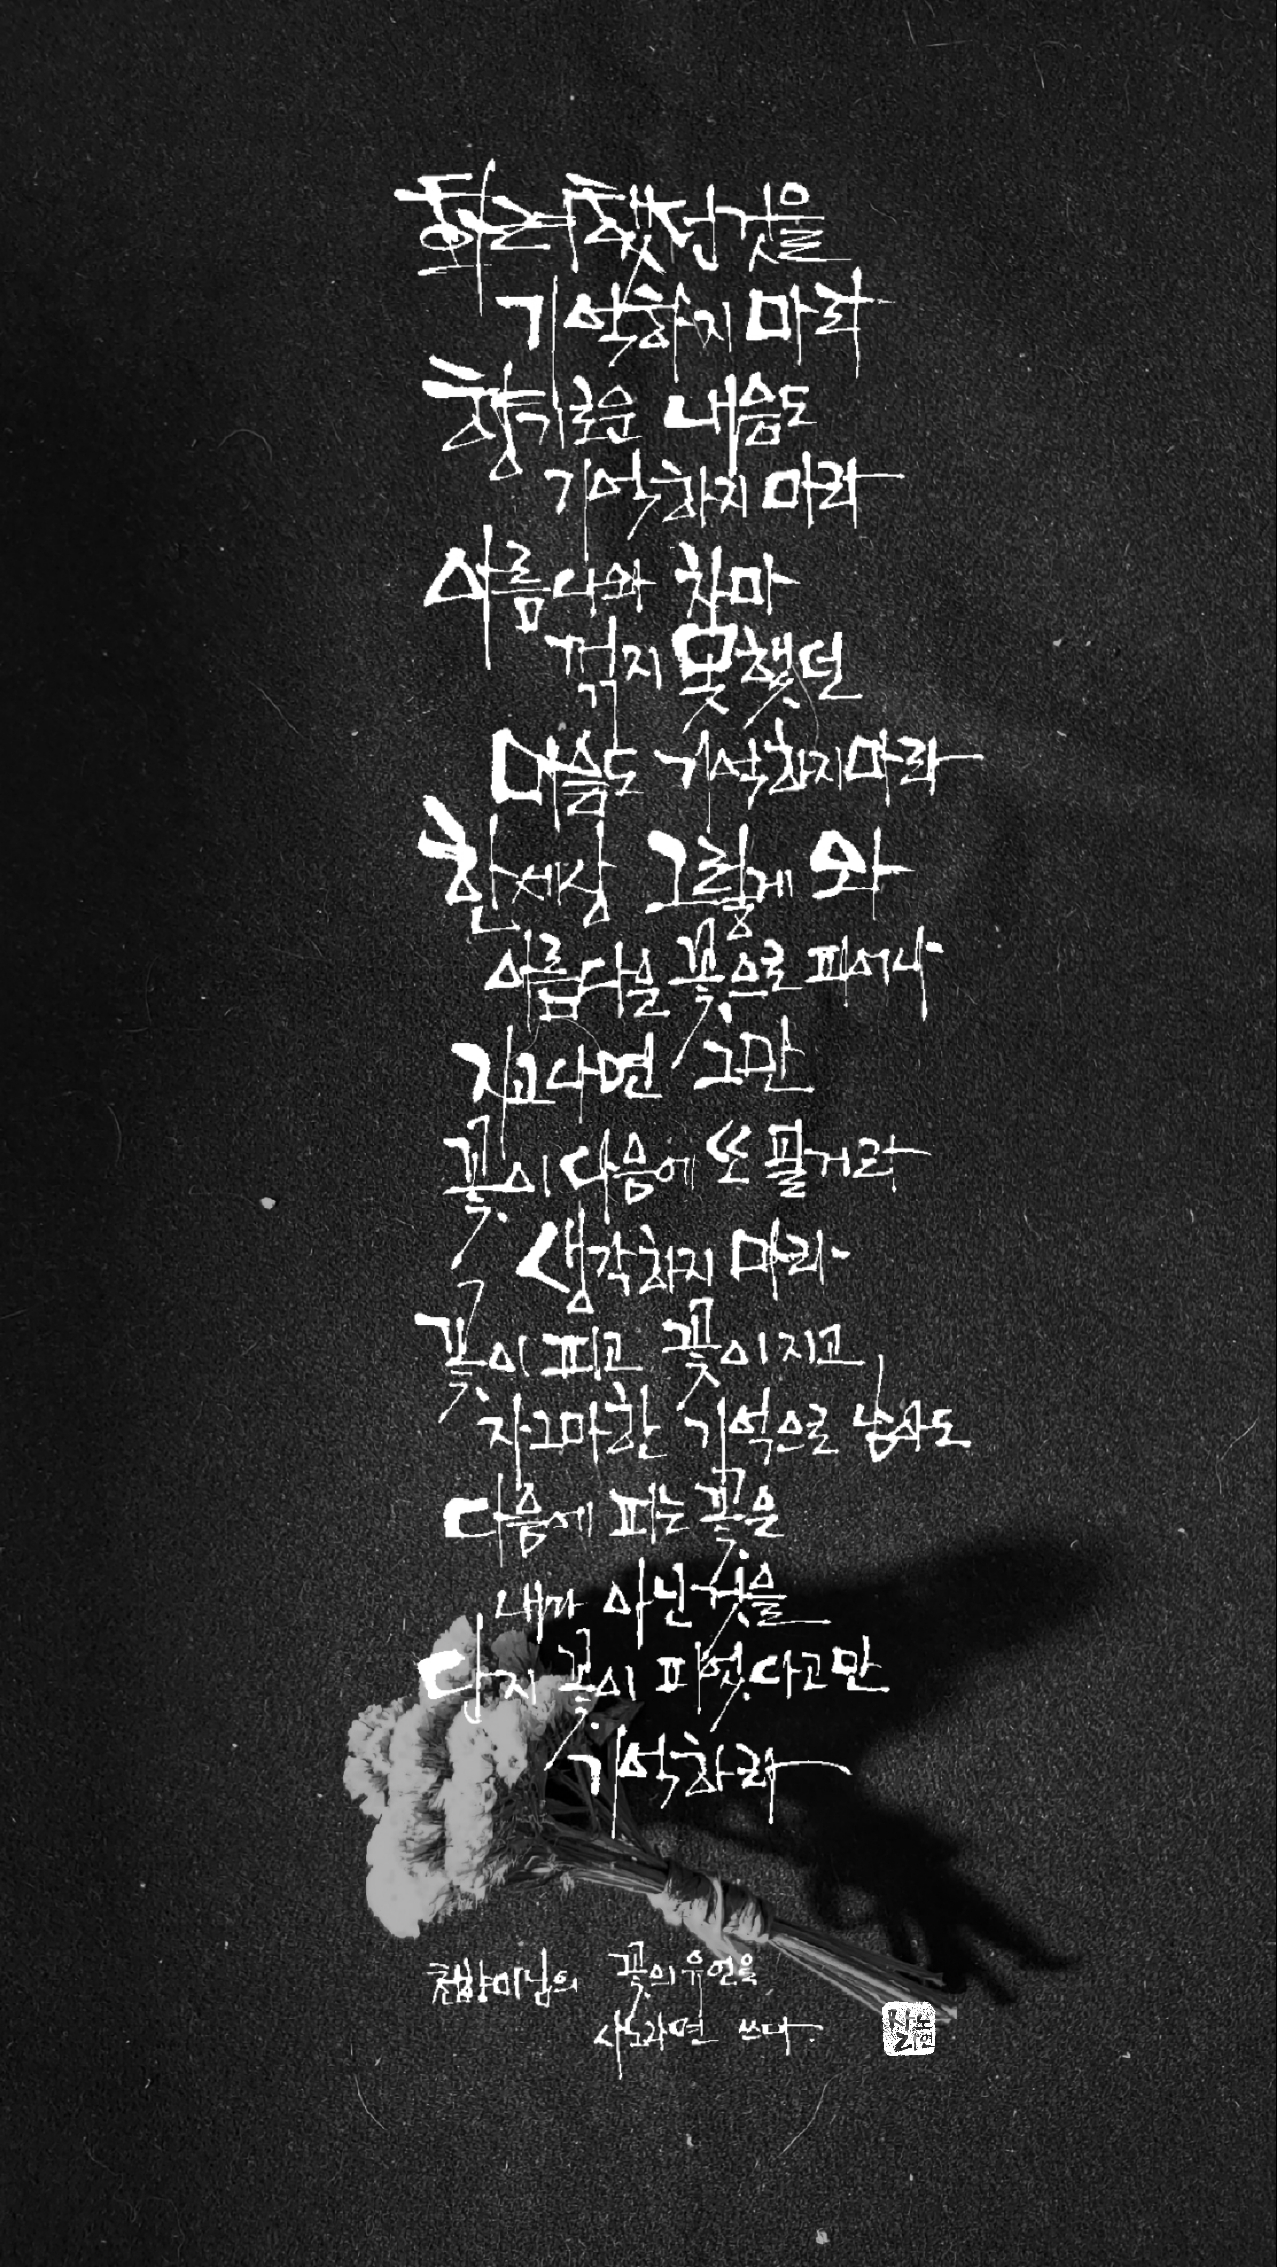 화려했던 것을
기억하지 마라
향기로운 내음도
기억하지 마라
아름다와 차마
꺾지 못했던
마음도 기억하지 마라
한세상 그렇게 와
아름다운 꽃으로 피어나
지고나면 그만
꽃이 다음에 또 필거라
생각하지 마라
꽃이 피고 꽃이 지고
자그마한 기억으로 남아도
다음에 피는 꽃은
내가 아닌 것을
단지 꽃이 피었다고만
기억하라
천향미님의 꽃의 유언을
사노라면 쓰다.